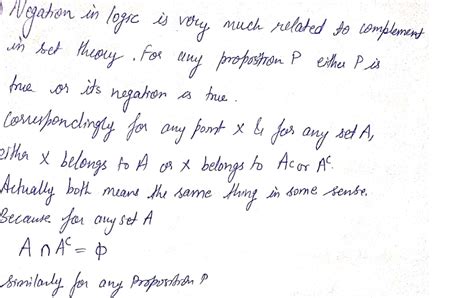 Negation in logic is very much related to complement
in set theory. For any proposition P either P is
true or its negation is true.
Correspondingly for any point x & for any set A,
either x belongs to A or x belongs to Ac or Aᶜ.
Actually both means the same thing in some sense.
Because for any set A
A ∩ Aᶜ = ϕ
similarly for any Proposition P